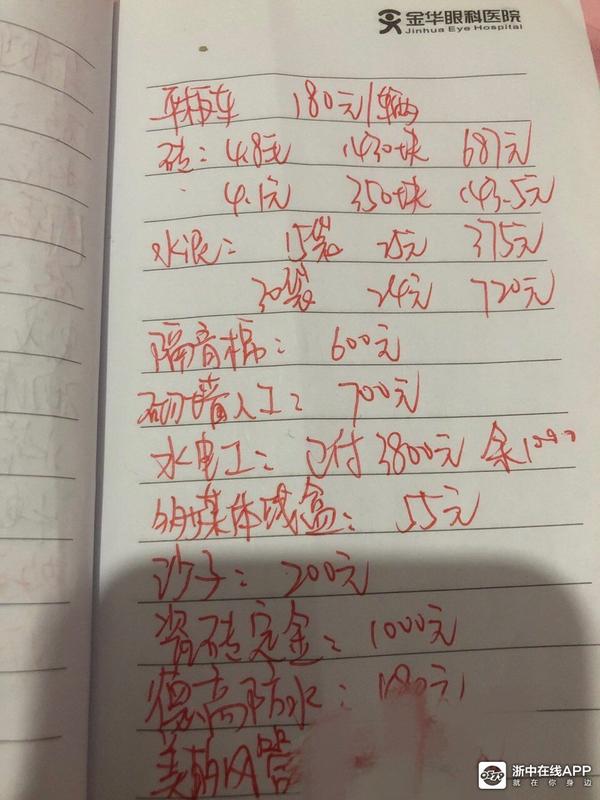 金华眼科医院
Jinhua Eye Hospital
车 180元/辆
砖: 4.8毛 1430块 687元
4.1元 350块 143.5元
水泥: 15袋 25元 375元
30袋 24元 720元
隔音棉: 600元
砌墙人工: 700元
水电工: 已付3800元 余
多媒体线盒: 55元
沙子: 200元
瓷砖定金: 1000元
德高防水:
美
浙中在线APP
就在你身边